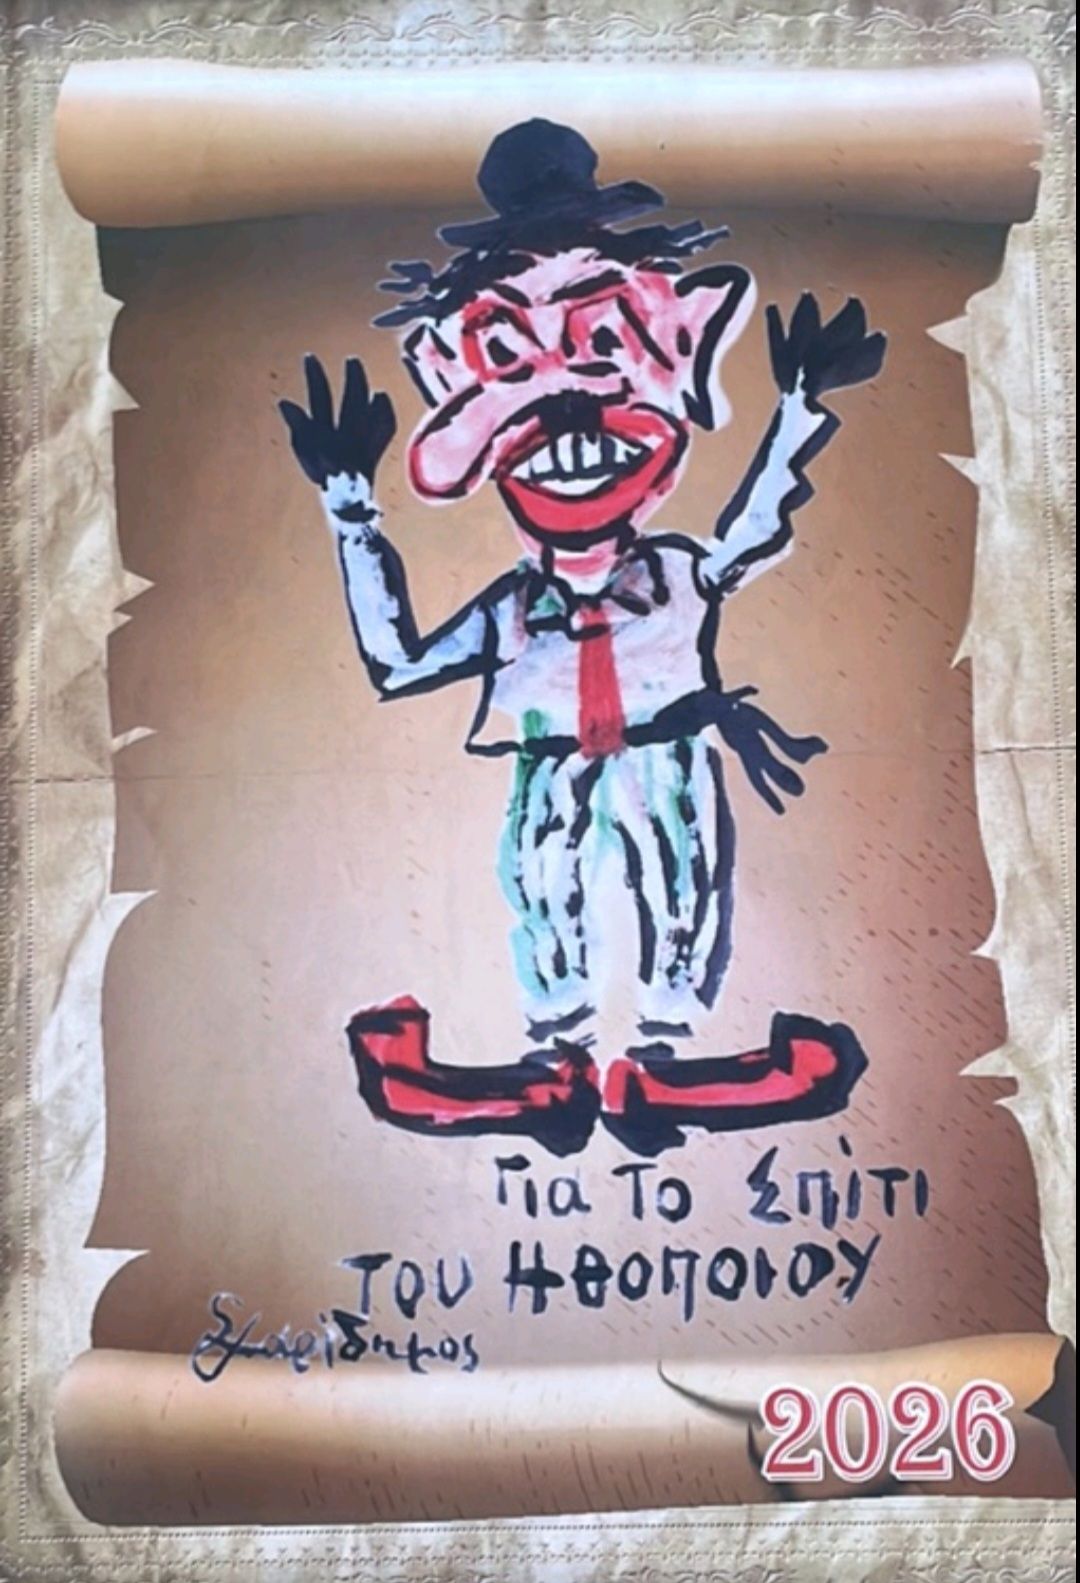 Για το Σπίτι
του Ηθοποιου
Σ. Χαρίδημος
2026